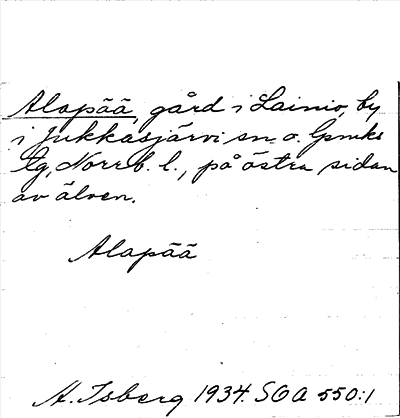 Alapää, gård i Lainio, by
i Jukkasjärvi sn o. Gmks
tg, Norrb. l., på östra sidan
av älven.
Alapää
A. Isberg 1934. SOA 550:1